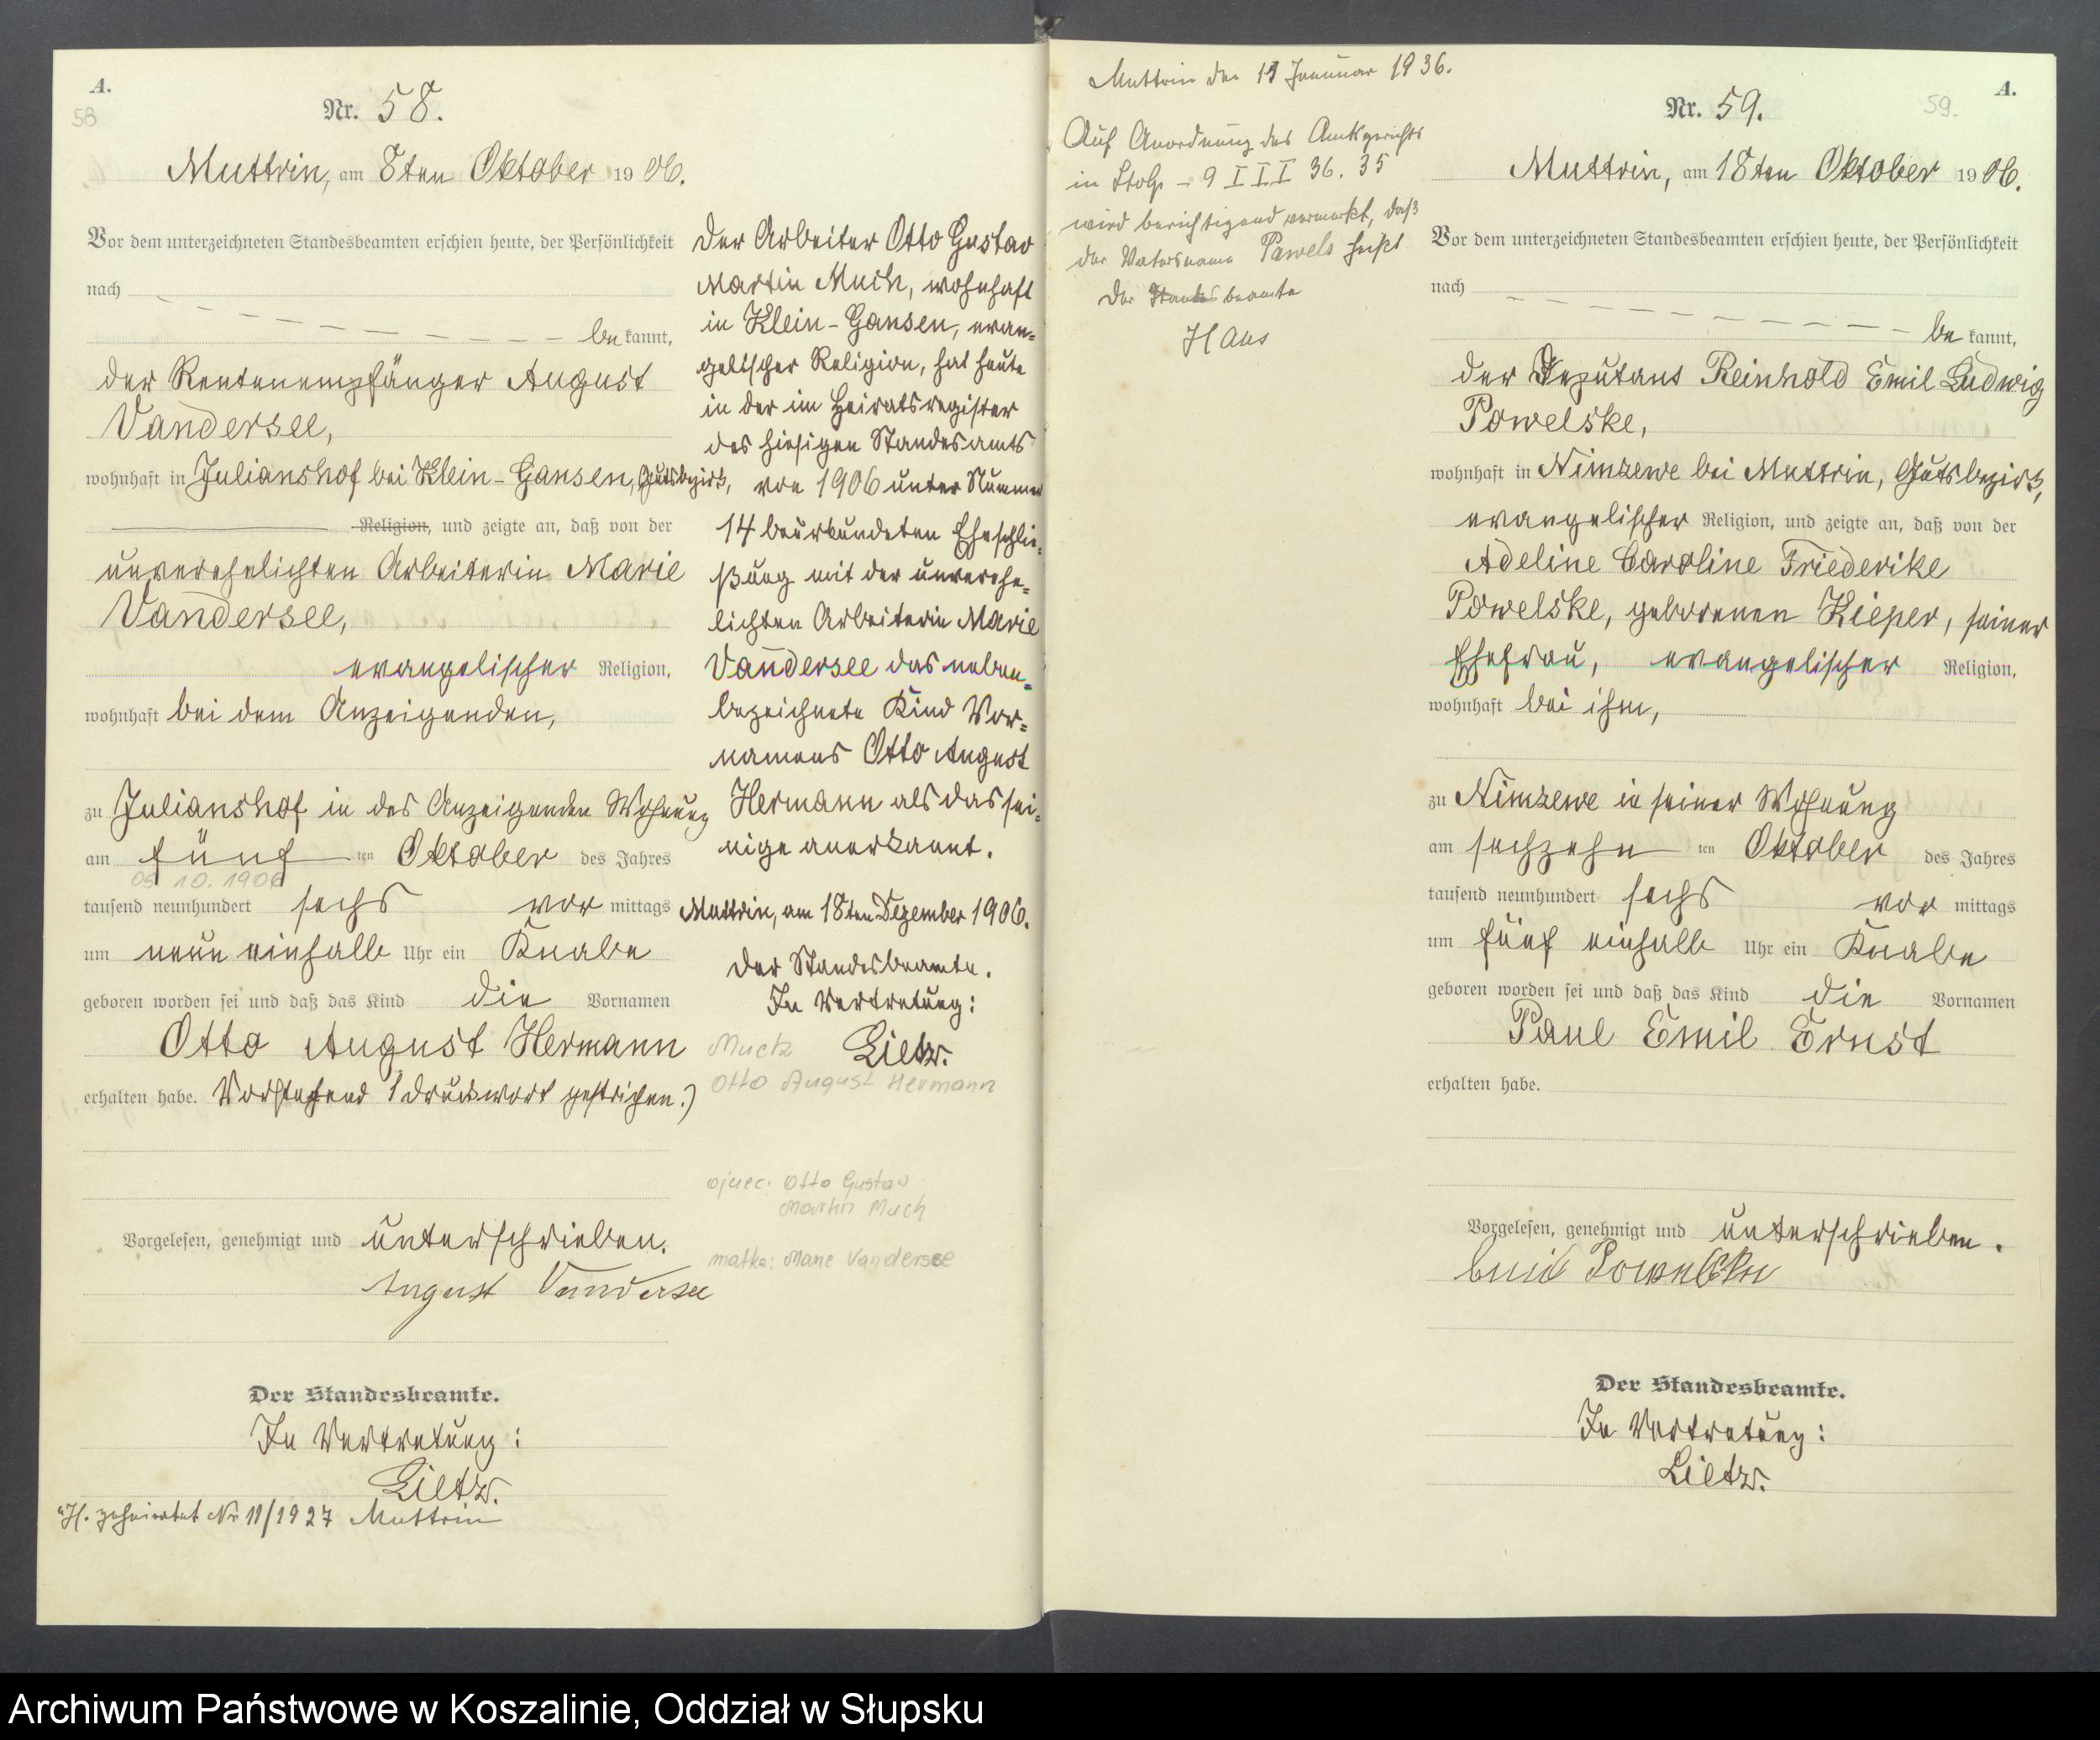 A.
58
Nr. 58.
Muttrin, am 8ten Oktober 1906.
Vor dem unterzeichneten Standesbeamten erschien heute, der Persönlichkeit
nach
be kannt,
der Rentenempfänger August
Vandersee,
wohnhaft in Julianshof bei Klein-Gansen, Gutsbezirk,
Religion, und zeigte an, daß von der
unverehelichten Arbeiterin Marie
Vandersee,
evangelischer Religion,
wohnhaft bei dem Anzeigenden,
zu Julianshof in des Anzeigenden Wohnung
am fünf ten Oktober des Jahres
05 10. 1906
tausend neunhundert sechs vor mittags
um neun einhalb Uhr ein Knabe
geboren worden sei und daß das Kind die Vornamen
Otto August Hermann
erhalten habe. Vorstehend 1 Druckwort gestrichen.)
Vorgelesen, genehmigt und unterschrieben.
August Vandersee
Der Standesbeamte.
In Vertretung:
Lietz.
geheiratet Nr 11/1927 Muttrin
Der Arbeiter Otto Gustav
Martin Much, wohnhaft
in Klein-Gansen, evan=
gelischer Religion, hat heute
in der im Heiratsregister
des hiesigen Standesamts
von 1906 unter Nummer
14 beurkundeten Eheschlie=
ßung mit der unverehe=
lichten Arbeiterin Marie
Vandersee das neben=
bezeichnete Kind Vor=
namens Otto August
Hermann als das sei=
nige anerkannt.
Muttrin, am 18ten Dezember 1906.
Der Standesbeamte.
In Vertretung:
Lietz.
Much
Otto August Hermann
ojciec: Otto Gustaw
Martin Much
matka: Marie Vandersee
Muttrin den 11 Januar 1936.
Auf Anordnung des Amtsgerichts
in Stolp - 9 III 36. 35
wird berichtigend vermerkt, daß
der Vatersname Pawels heißt
Der Standesbeamte
A.
59.
Nr. 59.
Muttrin, am 18ten Oktober 1906.
Vor dem unterzeichneten Standesbeamten erschien heute, der Persönlichkeit
nach
be kannt,
der Deputant Reinhold Emil Ludwig
Powelske,
wohnhaft in Nimzewe bei Muttrin, Gutsbezirk,
evangelischer Religion, und zeigte an, daß von der
Adeline Caroline Friederike
Powelske, geborenen Kieper, seiner
Ehefrau, evangelischer Religion,
wohnhaft bei ihm,
zu Nimzewe in seiner Wohnung
am sechzehn ten Oktober des Jahres
tausend neunhundert sechs vor mittags
um fünf einhalb Uhr ein Knabe
geboren worden sei und daß das Kind die Vornamen
Paul Emil Ernst
erhalten habe.
Vorgelesen, genehmigt und unterschrieben.
Emil Powelske
Der Standesbeamte.
In Vertretung:
Lietz.
Archiwum Państwowe w Koszalinie, Oddział w Słupsku